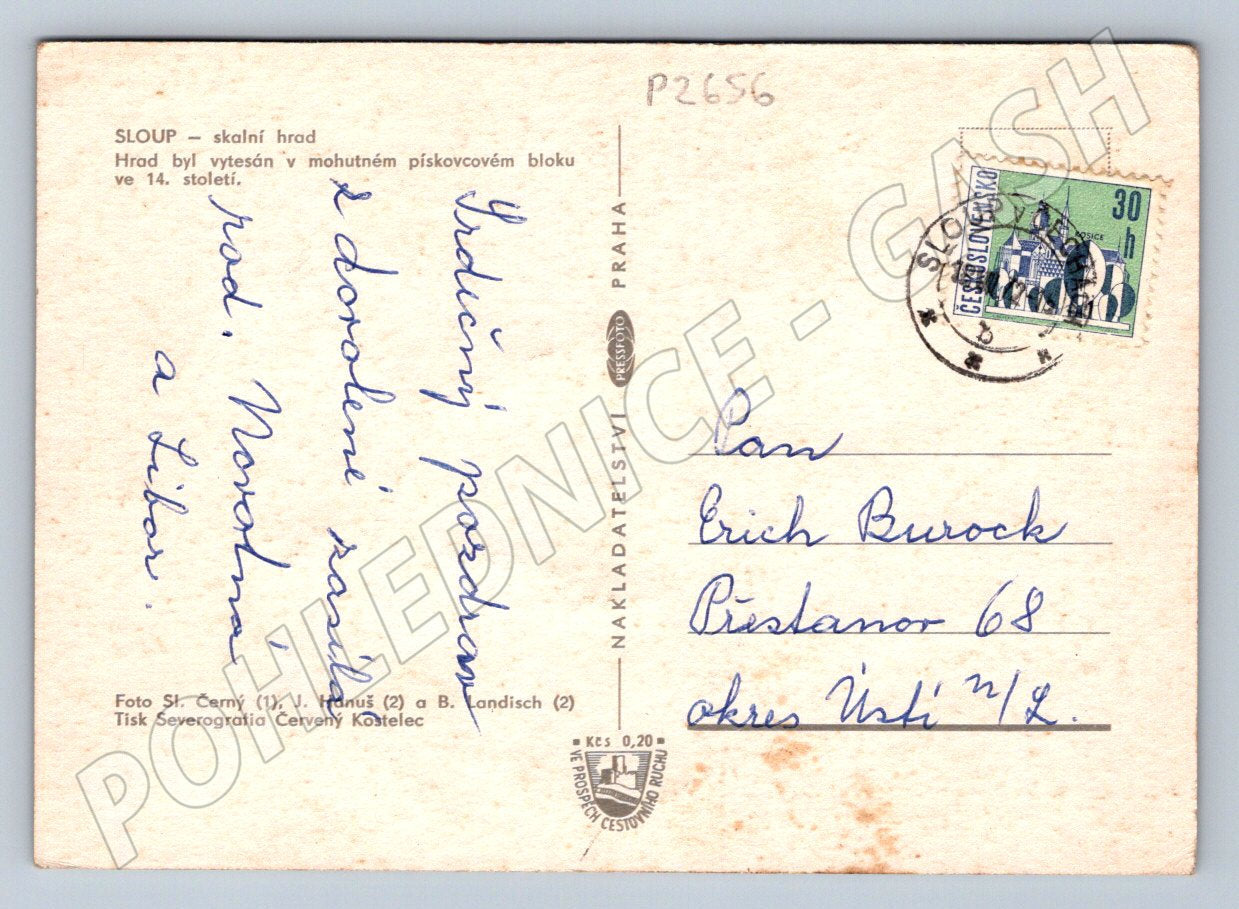 P2656
SLOUP – skalní hrad
Hrad byl vytesán v mohutném pískovcovém bloku
ve 14. století.
Srdečný pozdrav
z dovolené zasílá
rod. Novotná
a Libor.
Foto Sl. Černý (1), J. Hanuš (2) a B. Landisch (2)
Tisk Severografia Červený Kostelec
NAKLADATELSTVÍ PRESSFOTO PRAHA
Kčs 0,20
VE PROSPĚCH CESTOVNÍHO RUCHU
ČESKOSLOVENSKO
30 h
KOŠICE
SLOUP V ČECHÁCH
a
Pan
Erich Burock
Přestanov 68
okres Ústí n/L.
POHLEDNICE - GASH